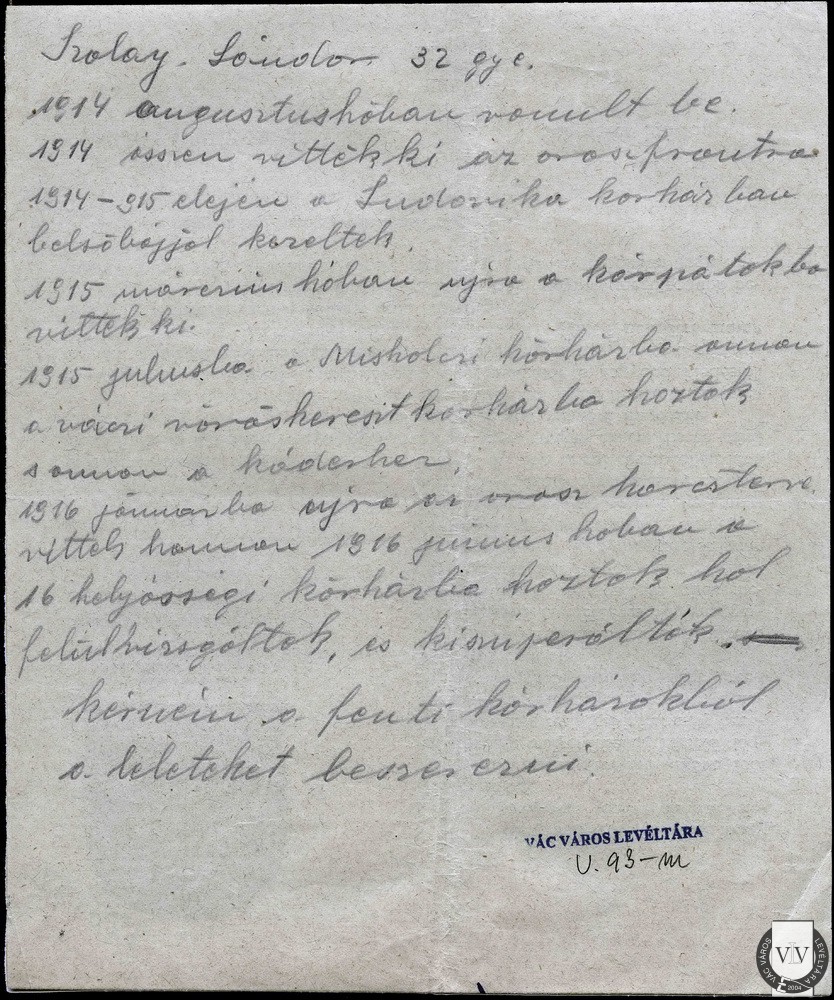 Szolay Sándor 32 gye.
1914 augusztushóban vonult be.
1914 össen vitték ki az orosz frontra
1914-915 elején a Ludovika korházban
belsőbajjal kezeltek.
1915 március hóban ujra a kárpátokba
vitték ki.
1915 juliusba a Miskolci kórházba onnan
a váczi vöröskereszt korházba hoztok
s onnan a káderhez.
1916 januárba ujra az orosz harcztérre
vittek honnan 1916 junius hoban a
16 helyőrségi kórházba hoztak hol
felülvizsgáltok, és kiszuperálták.
kérném a fenti kórházokból
a leleteket beszerezni.
VÁC VÁROS LEVÉLTÁRA
V. 93-m
VÁC VÁROS LEVÉLTÁRA
VVL
2004